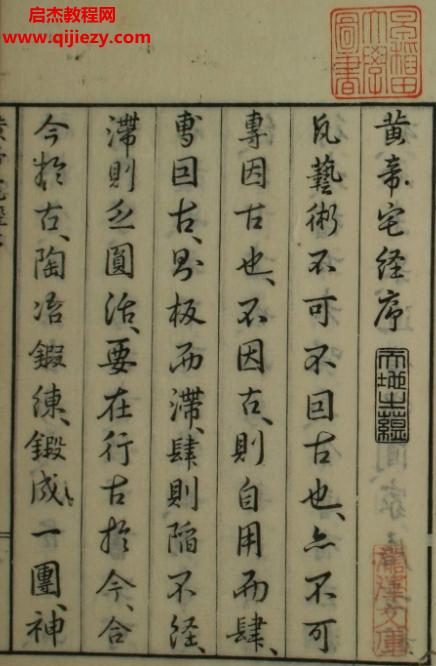 启杰教程网
www.qijiezy.com
早稲田大學圖書
黄帝宅经序
凡藝術不可不因古也、亦不可
專因古也、不因古、則自用而肆、
專因古、則板而滞、肆則陥不经、
滞則乏圓活、要在行古於今、合
今於古、陶冶鍛練、鍛成一團、神